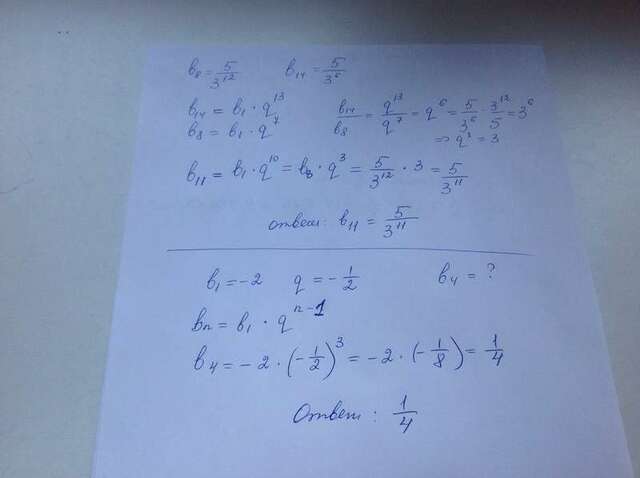 b₈ = 5/3¹²   b₁₄ = 5/3⁶
b₁₄ = b₁ · q¹³   b₁₄/b₈ = q¹³/q⁷ = q⁶ = 5/3⁶ · 3¹²/5 = 3⁶
b₈ = b₁ · q⁷   ⇒ q³ = 3
b₁₁ = b₁ · q¹⁰ = b₈ · q³ = 5/3¹² · 3 = 5/3¹¹
ответ: b₁₁ = 5/3¹¹
b₁ = -2   q = -1/2   b₄ = ?
bₙ = b₁ · qⁿ⁻¹
b₄ = -2 · (-1/2)³ = -2 · (-1/8) = 1/4
Ответ: 1/4